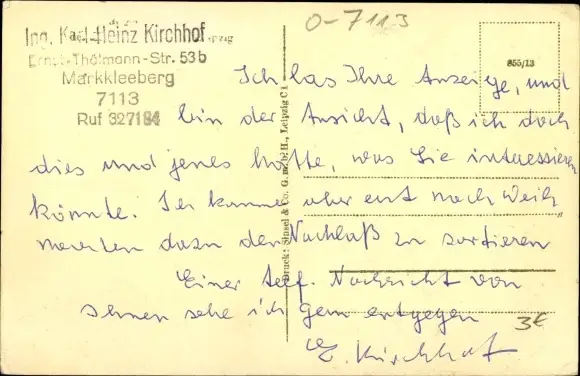 O-7113
Ing. Karl-Heinz Kirchhof
Ernst-Thälmann-Str. 53b
Markkleeberg
7113
Ruf 327184
855/13
Ich las Ihre Anzeige, und
bin der Ansicht, daß ich doch
dies und jenes hätte, was Sie interessieren
könnte. Ich komme aber erst nach Weih
nachten dazu den Nachlaß zu sortieren
Einer telef. Nachricht von
Ihnen sehe ich gern entgegen
Kirchhof
3€
Druck: Sinsel & Co. G.m.b.H., Leipzig C1